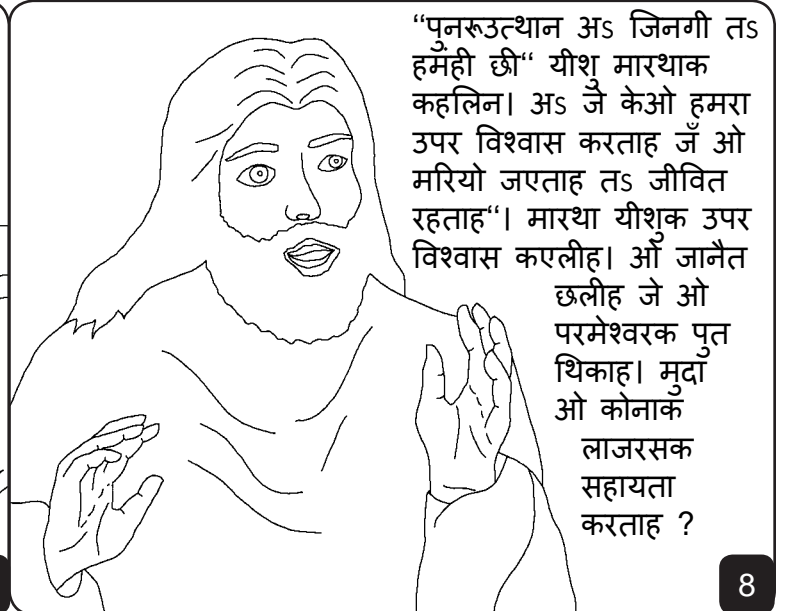 “पुनरूउत्थान अऽ जिनगी तऽ
हमंही छी“ यीशु मारथाक
कहलिन। अऽ जे केओ हमरा
उपर विश्वास करताह जँ ओ
मरियो जएताह तऽ जीवित
रहताह“। मारथा यीशुक उपर
विश्वास कएलीह। ओ जानैत
छलीह जे ओ
परमेश्वरक पुत
थिकाह। मुदा
ओ कोनाक
लाजरसक
सहायता
करताह ?
8